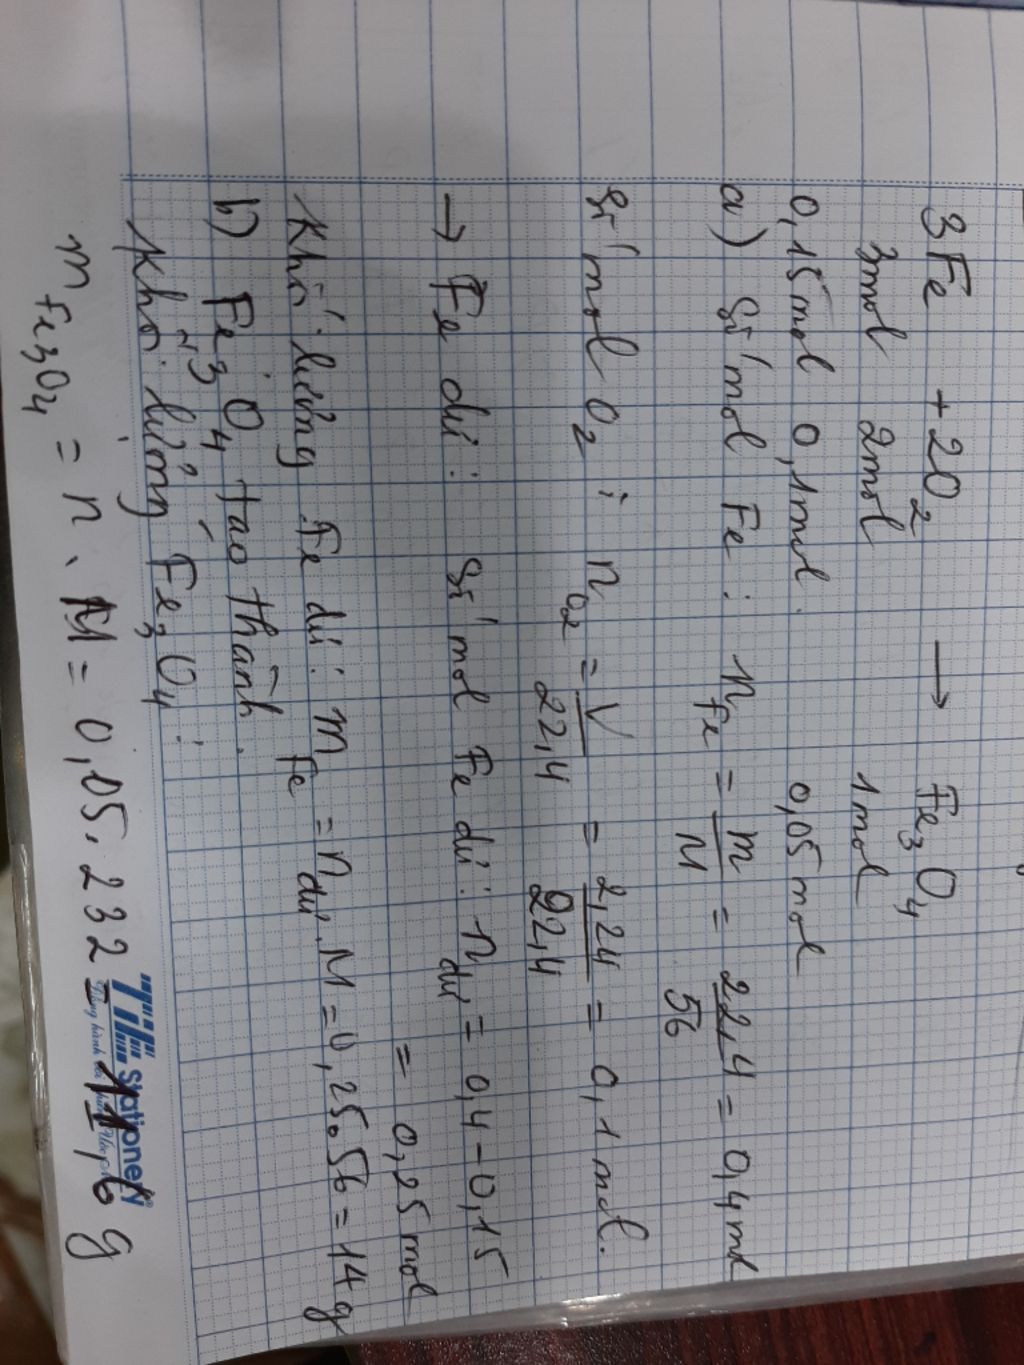 3Fe + 2O2 → Fe3O4
3mol 2mol 1mol
0,15mol 0,1mol. 0,05mol
a) Số mol Fe: nFe = m/M = 22,4/56 = 0,4 mol
Số mol O2: nO2 = V/22,4 = 2,24/22,4 = 0,1 mol.
→ Fe dư: Số mol Fe dư: ndư = 0,4 - 0,15
= 0,25 mol
Khối lượng Fe dư: mFe = ndư.M = 0,25.56 = 14g
b) Fe3O4 tạo thành.
Khối lượng Fe3O4:
mFe3O4 = n.M = 0,05.232 = 11,6 g
TL Stationery